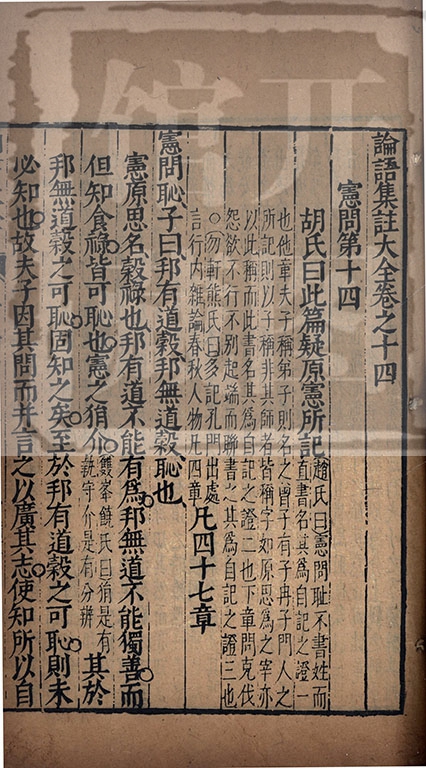 論語集註大全卷之十四
憲問第十四
胡氏曰此篇疑原憲所記
趙氏曰憲問恥不書姓而
直書名其爲自記之證一
也他章夫子稱弟子則名之曾子有子冉子門人之
所記則以子稱非其師者皆稱字如原思爲之宰亦
以此稱而此書名其爲自記之證二也下章問克伐
怨欲不行不別起端而聯書之其爲自記之證三也
○勿軒熊氏曰多記孔門出處
言行内雜論春秋人物凡四章
凡四十七章
憲問恥子曰邦有道穀邦無道穀恥也
憲原思名穀祿也邦有道不能有爲邦無道不能獨善而
但知食祿皆可恥也憲之狷介
雙峯饒氏曰狷是有
執守介是有分辨
其於
邦無道穀之可恥固知之矣至於邦有道穀之可恥則未
必知也故夫子因其問而并言之以廣其志使知所以自